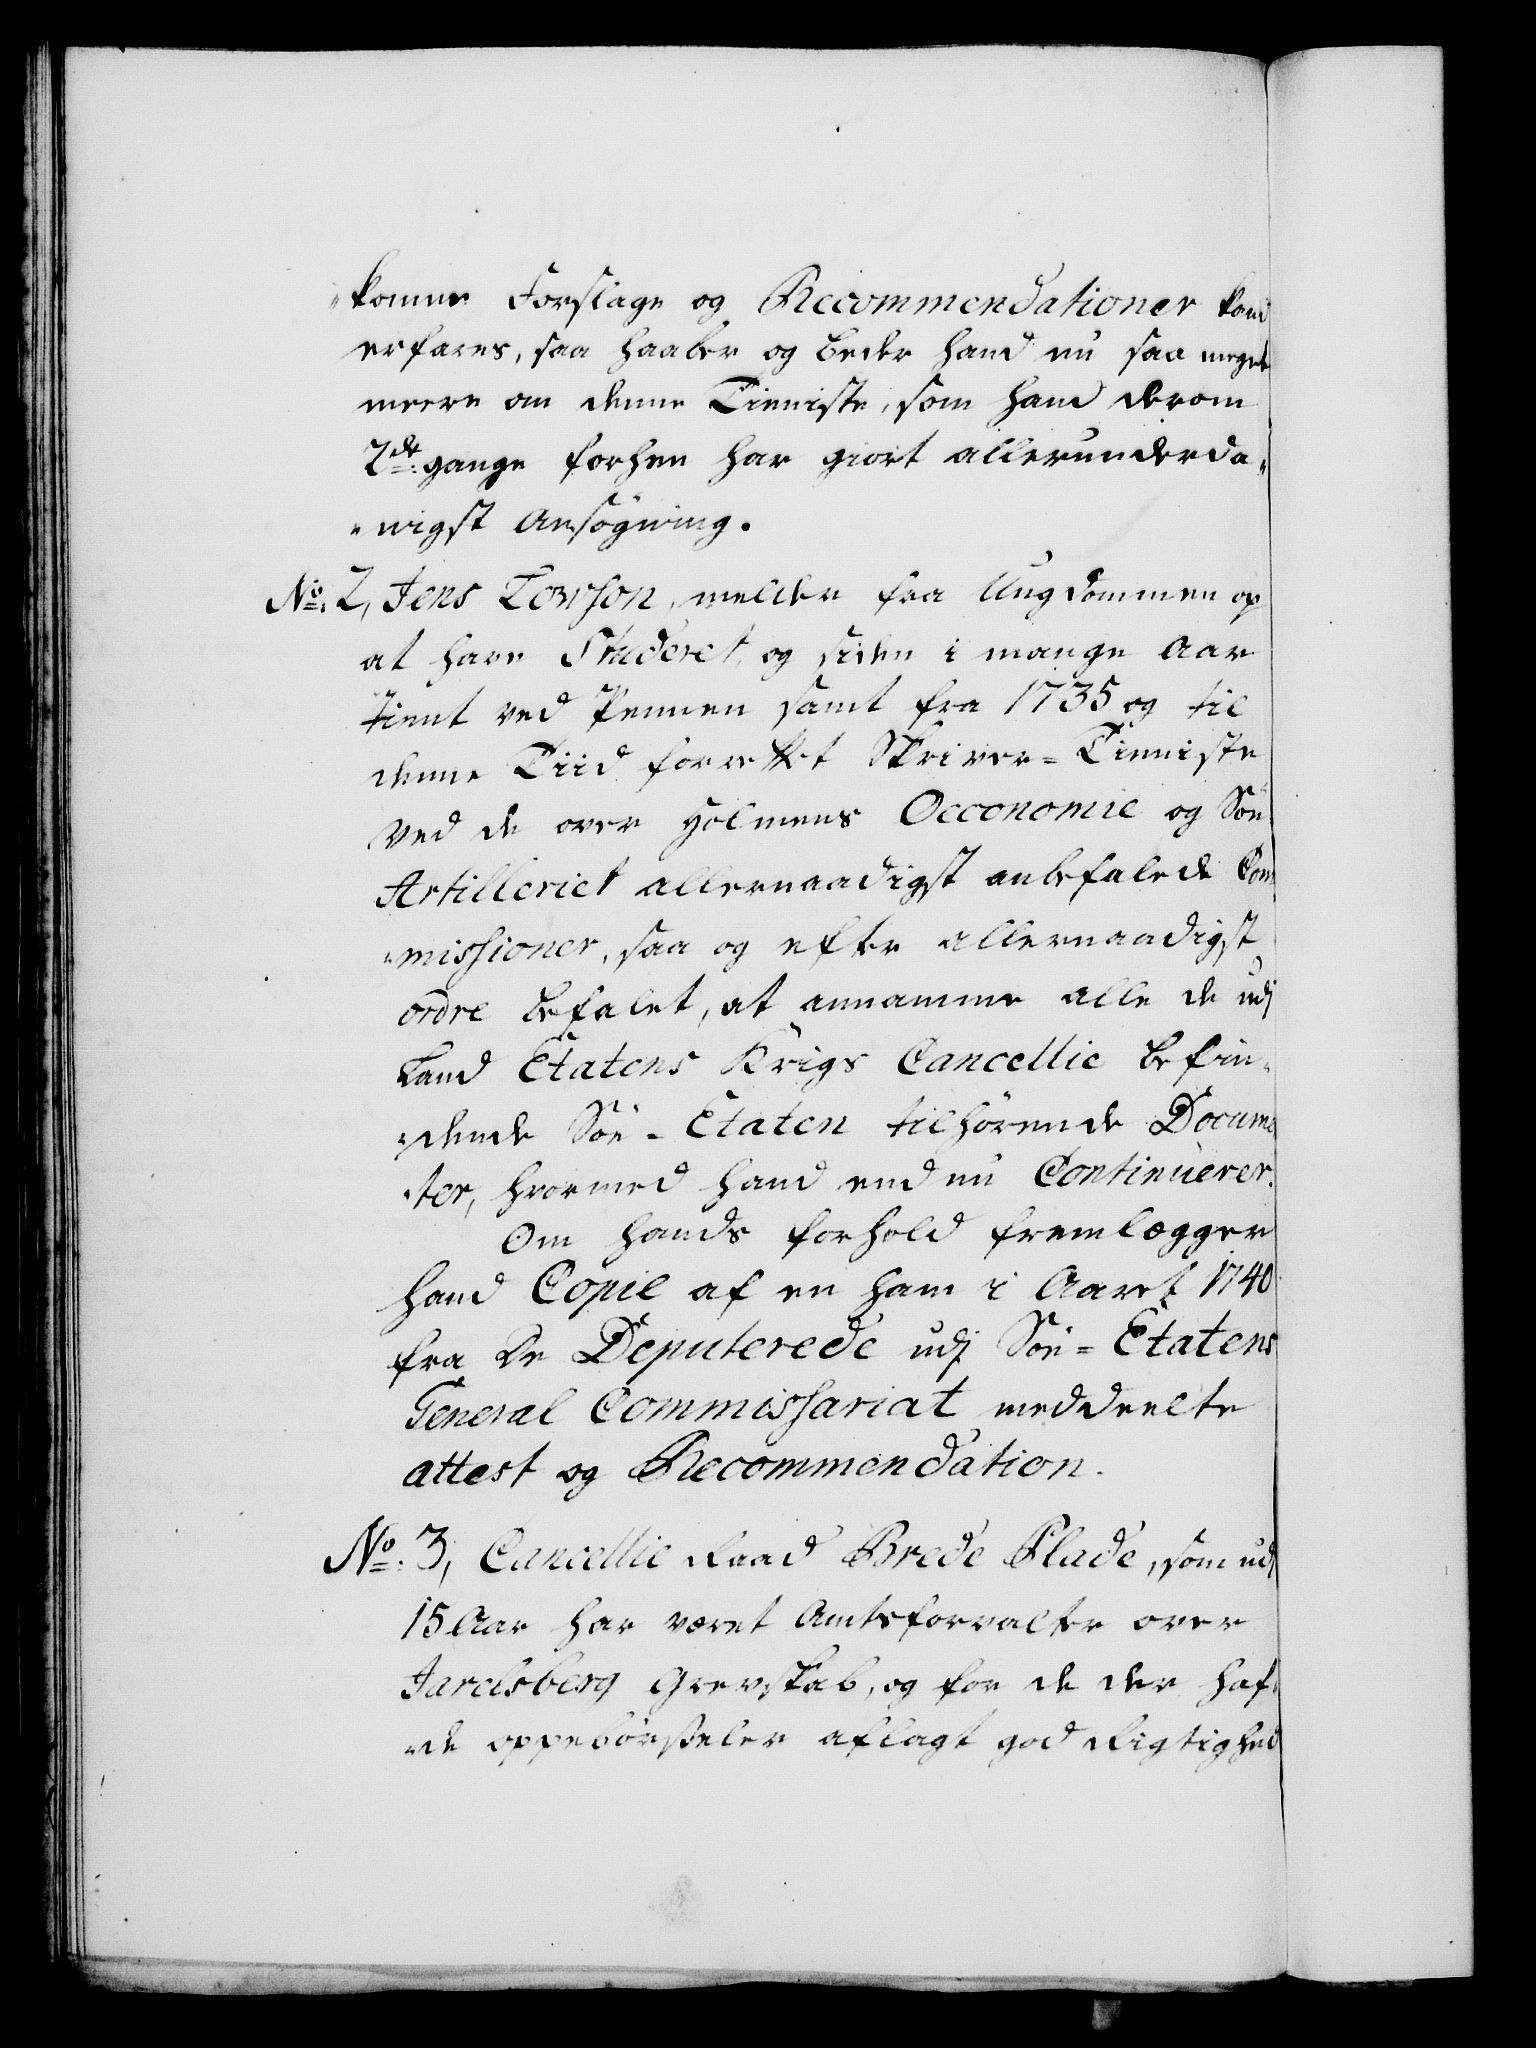 "komne Forslage og Recommendationer kand
erfares, saa haaber og beder hand nu saa meget
meere om denne Tieniste, som hand derom
2de gange forhen har giort allerunderda„
„nigst Ansøgning.
No: 2, Jens Towson, melder fra Ungdommen op
at have Studeret, og siden i mange Aar
tient ved Pennen samt fra 1735 og til
denne Tiid forrettet Skriver=Tieniste
ved de over Holmens Oeconomie og Söe
Artilleriet allernaadigst anbefalede Com
„missioner, saa og efter allernaadigst
ordre befalet, at annamme alle de udj
Land Etatens Krigs Cancellie befin„
„dende Söe-Etaten tilhørende Docume
„ter, hvormed hand end nu Continuerer.
Om hands forhold fremlægger
hand Copie af en ham i Aaret 1740
fra De Deputerede udj Söe=Etatens
General Commissariat meddeelte
attest og Recommendation.
No: 3, Cancellie Raad Brede Plade, som udj
15 Aar har været Amtsforvalter over
Jarlsberg Grevskab, og for de der haf„
„de oppebørseler aflagt god Rigtighed